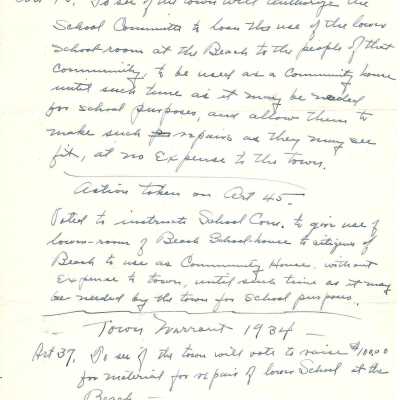 Art 45. To see if the town will authorize the
School Committee to loan the use of the lower
school-room at the Beach to the people of that
Community, to be used as a Community house
until such time as it may be needed
for school purposes, and allow them to
make such repairs as they may see
fit, at no expense to the Town.
Action taken on Art 45.
Voted to instruct School Com. to give use of
lower-room of Beach School-house to citizens of
Beach to use as Community House, without
Expense to town, until such time as it may
be needed by the town for School purposes.
- Town Warrant 1934 -
Art 37. To see if the town will vote to raise $100.00
for material for repair of lower School at the
Beach -